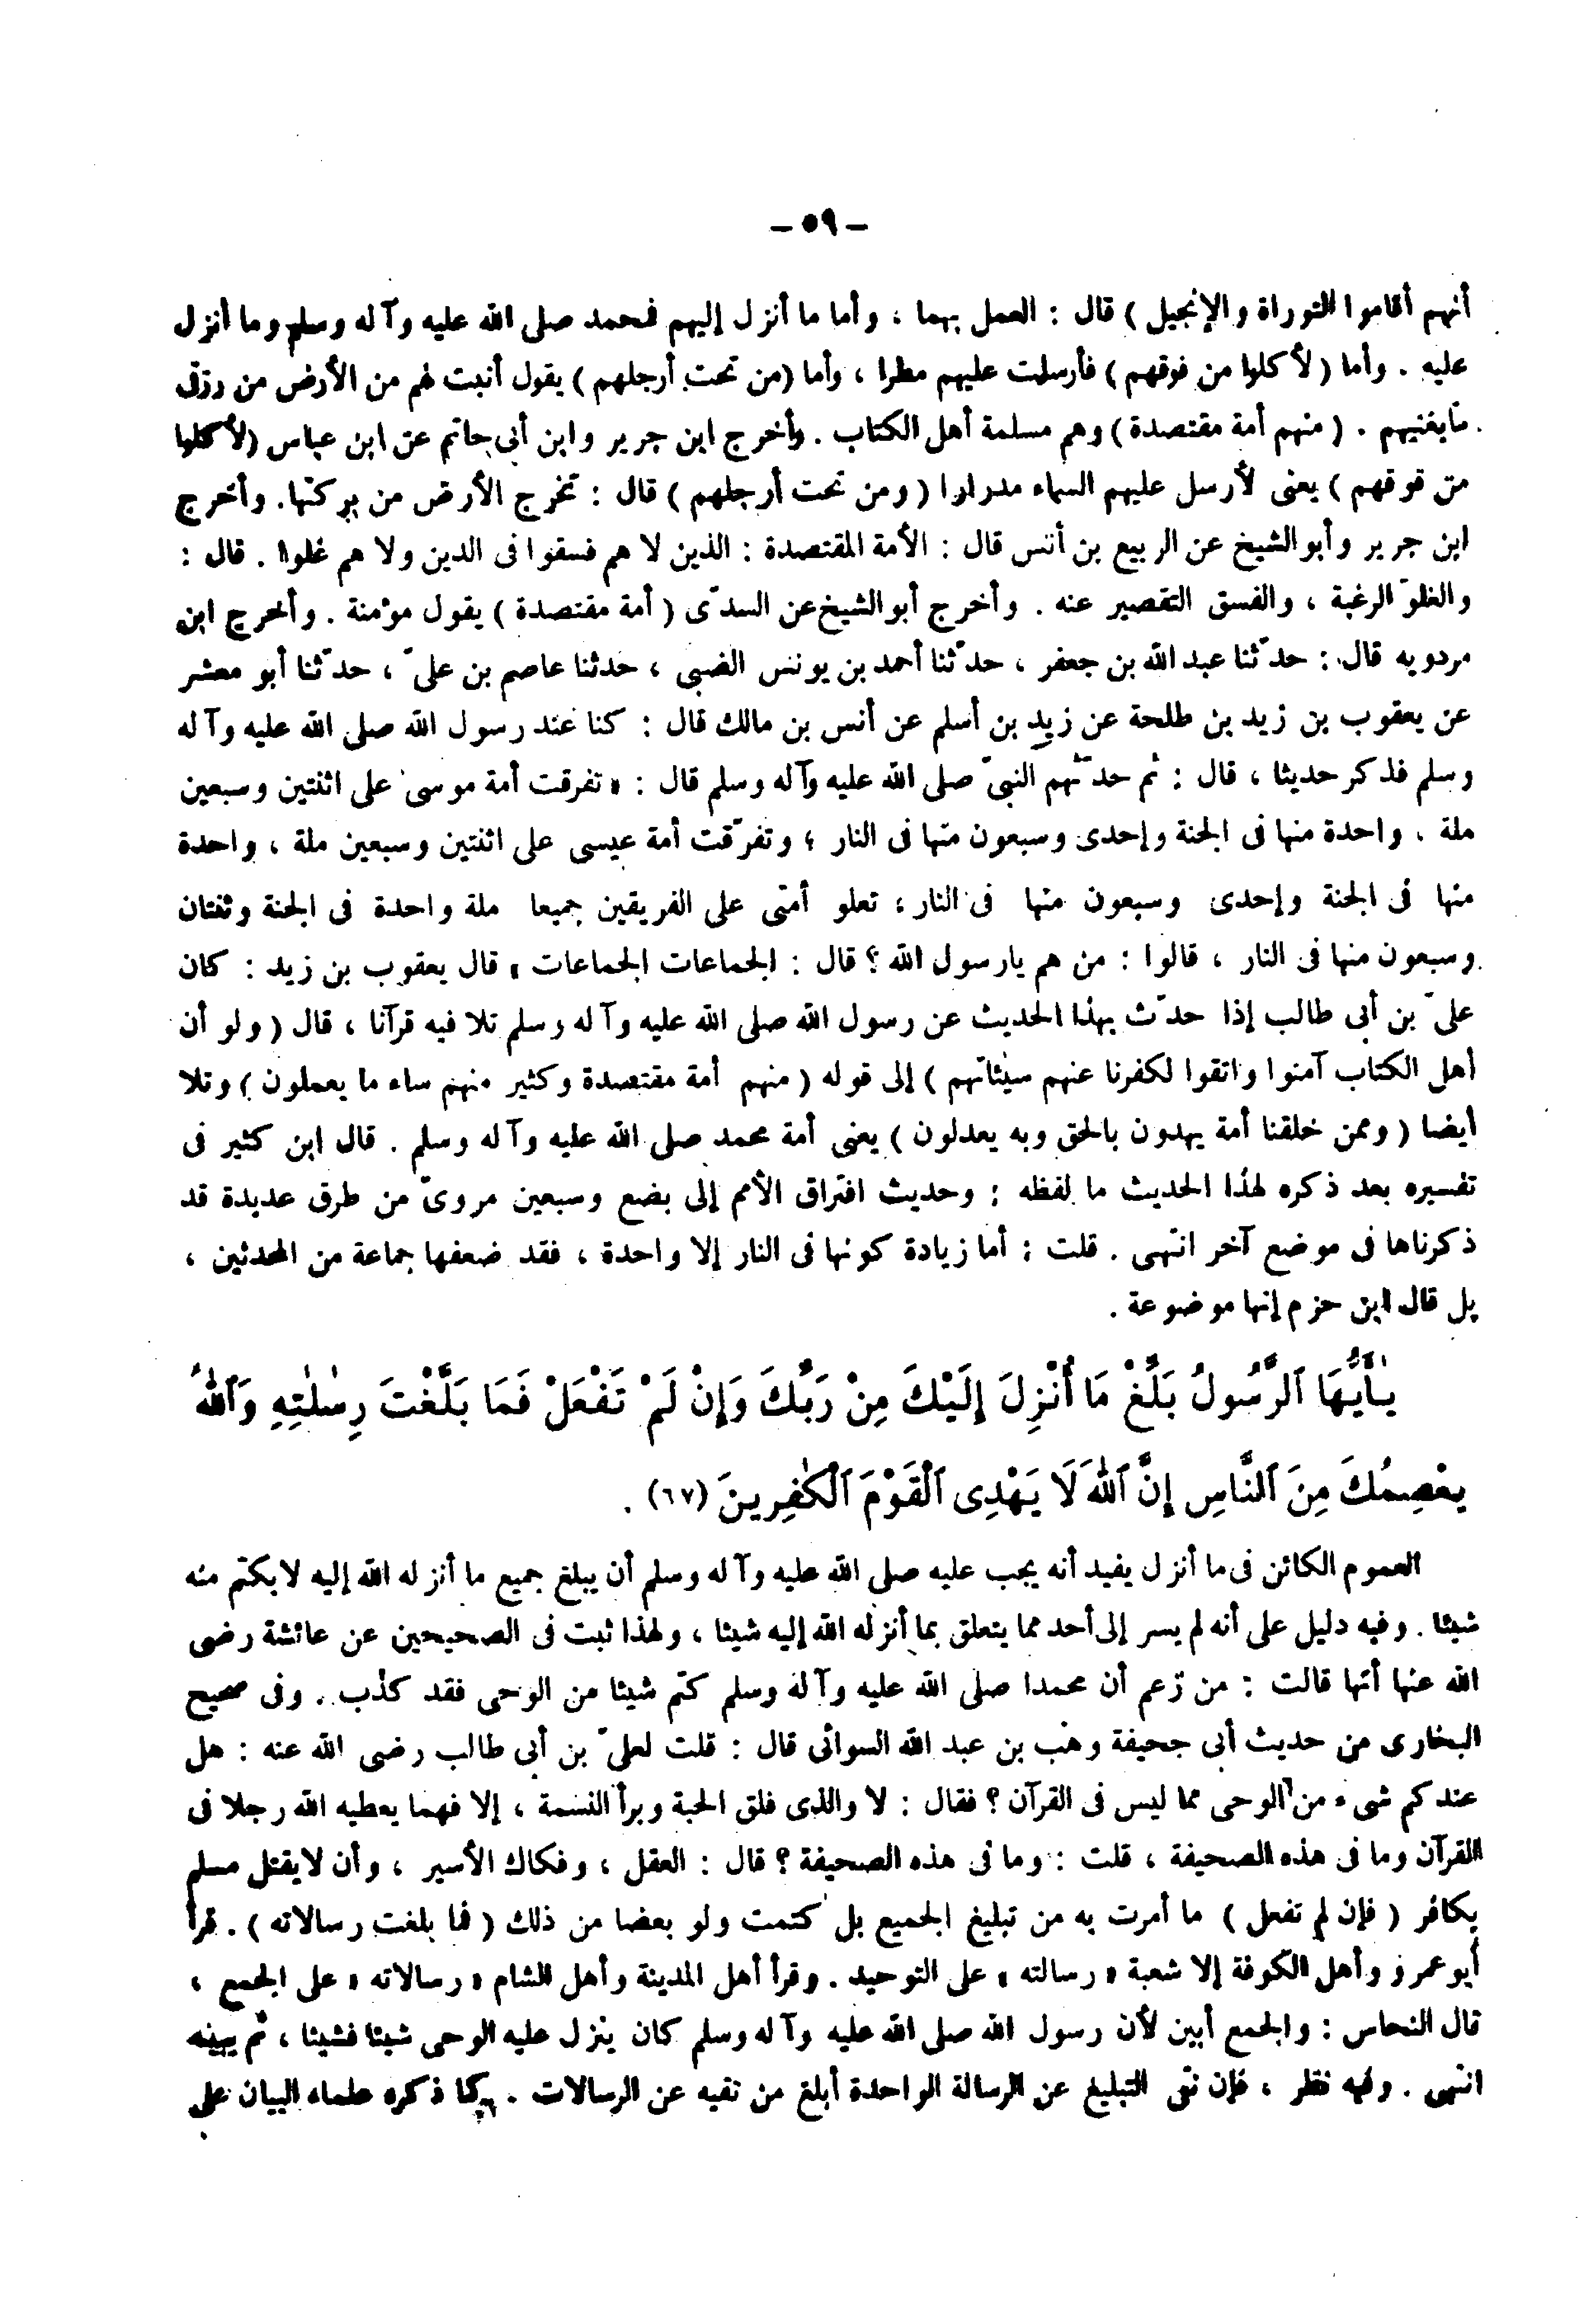 - ٥٩ -
أنهم أقاموا التوراة والإنجيل ) قال : العمل بهما ، وأما ما أنزل إليهم فمحمد صلى الله عليه وآله وسلم وما أنزل
عليه . وأما ( لأكلوا من فوقهم ) فأرسلت عليهم مطرا ، وأما (من تحت أرجلهم ) يقول أنبت لهم من الأرض من رزق
مايغنيهم . ( منهم أمة مقتصدة ) وهم مسلمة أهل الكتاب . وأخرج ابن جرير وابن أبى حاتم عن ابن عباس (لأكلوا
من فوقهم ) يعنى لأرسل عليهم السماء مدرارا ( ومن تحت أرجلهم ) قال : تخرج الأرض من بركتها. وأخرج
ابن جرير وأبو الشيخ عن الربيع بن أنس قال : الأمة المقتصدة : الذين لا هم فسقوا فى الدين ولا هم غلوا . قال :
والغلوّ الرغبة ، والفسق التقصير عنه . وأخرج أبو الشيخ عن السدّى ( أمة مقتصدة ) يقول مؤمنة . وأخرج ابن
مردويه قال : حدّثنا عبد الله بن جعفر ، حدّثنا أحمد بن يونس الضبى ، حدثنا عاصم بن علىّ ، حدّثنا أبو معشر
عن يعقوب بن زيد بن طلحة عن زيد بن أسلم عن أنس بن مالك قال : كنا عند رسول الله صلى الله عليه وآله
وسلم فذكر حديثا ، قال : ثم حدّثهم النبىّ صلى الله عليه وآله وسلم قال : « تفرقت أمة موسى على اثنتين وسبعين
ملة ، واحدة منها فى الجنة وإحدى وسبعون منها فى النار ؛ وتفرّقت أمة عيسى على اثنتين وسبعين ملة ، واحدة
منها فى الجنة وإحدى وسبعون منها فى النار ؛ تعلو أمتى على الفريقين جميعا ملة واحدة فى الجنة وثنتان
وسبعون منها فى النار ، قالوا : من هم يارسول الله ؟ قال : الجماعات الجماعات » قال يعقوب بن زيد : كان
علىّ بن أبى طالب إذا حدّث بهذا الحديث عن رسول الله صلى الله عليه وآله وسلم تلا فيه قرآنا ، قال ( ولو أن
أهل الكتاب آمنوا واتقوا لكفرنا عنهم سيئاتهم ) إلى قوله ( منهم أمة مقتصدة وكثير منهم ساء ما يعملون ) وتلا
أيضا ( وممن خلقنا أمة يهدون بالحق وبه يعدلون ) يعنى أمة محمد صلى الله عليه وآله وسلم . قال ابن كثير فى
تفسيره بعد ذكره لهذا الحديث ما لفظه : وحديث افتراق الأمم إلى بضع وسبعين مروىّ من طرق عديدة قد
ذكرناها فى موضع آخر انتهى . قلت : أما زيادة كونها فى النار إلا واحدة ، فقد ضعفها جماعة من المحدثين ،
بل قال ابن حزم إنها موضوعة .
يَـٰأَيُّهَا ٱلرَّسُولُ بَلِّغْ مَا أُنْزِلَ إِلَيْكَ مِنْ رَبِّكَ وَإِنْ لَمْ تَفْعَلْ فَمَا بَلَّغْتَ رِسٰلٰتِهِ وَٱللهُ
يَعْصِمُكَ مِنَ ٱلنَّاسِ إِنَّ ٱللهَ لَا يَهْدِى ٱلْقَوْمَ ٱلْكٰفِرِينَ (٦٧) .
العموم الكائن فى ما أنزل يفيد أنه يجب عليه صلى الله عليه وآله وسلم أن يبلغ جميع ما أنزله الله إليه لا يكتم منه
شيئا . وفيه دليل على أنه لم يسر إلى أحد مما يتعلق بما أنزله الله إليه شيئا ، ولهذا ثبت فى الصحيحين عن عائشة رضى
الله عنها أنها قالت : من زعم أن محمدا صلى الله عليه وآله وسلم كتم شيئا من الوحى فقد كذب . وفى صحيح
البخارى من حديث أبى جحيفة وهب بن عبد الله السوائى قال : قلت لعلىّ بن أبى طالب رضى الله عنه : هل
عندكم شىء من الوحى مما ليس فى القرآن ؟ فقال : لا والذى فلق الحبة وبرأ النسمة ، إلا فهما يعطيه الله رجلا فى
القرآن وما فى هذه الصحيفة ، قلت : وما فى هذه الصحيفة ؟ قال : العقل ، وفكاك الأسير ، وأن لا يقتل مسلم
بكافر ( فإن لم تفعل ) ما أمرت به من تبليغ الجميع بل كتمت ولو بعضا من ذلك ( فما بلغت رسالاته ) . قرأ
أبو عمرو وأهل الكوفة إلا شعبة « رسالته » على التوحيد . وقرأ أهل المدينة وأهل الشام « رسالاته » على الجمع ،
قال النحاس : والجمع أبين لأن رسول الله صلى الله عليه وآله وسلم كان ينزل عليه الوحى شيئا فشيئا ، ثم يبينه
انتهى . وفيه نظر ، فإن نفى التبليغ عن الرسالة الواحدة أبلغ من نفيه عن الرسالات . كما ذكره علماء البيان على